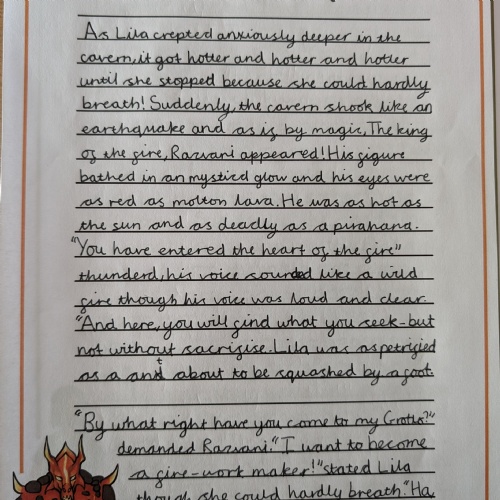 As Lila crepted anxiously deeper in the
cavern, it got hotter and hotter and hotter
until she stopped because she could hardly
breath! Suddenly, the cavern shook like an
earthquake and as if by magic, The king
of the fire, Razvani appeared! His figure
bathed in an mystical glow and his eyes were
as red as molton lava. He was as hot as
the sun and as deadly as a pirahana.
"You have entered the heart of the fire"
thunderd, his voice sounded like a wild
fire though his voice was loud and clear.
"And here, you will find what you seek-but
not without sacrifise. Lila was as petrified
as a ant about to be squashed by a foot.
"By what right have you come to my Grotto?"
demanded Razvani. "I want to become
a fire-work maker!" stated Lila
though she could hardly breath "Ha